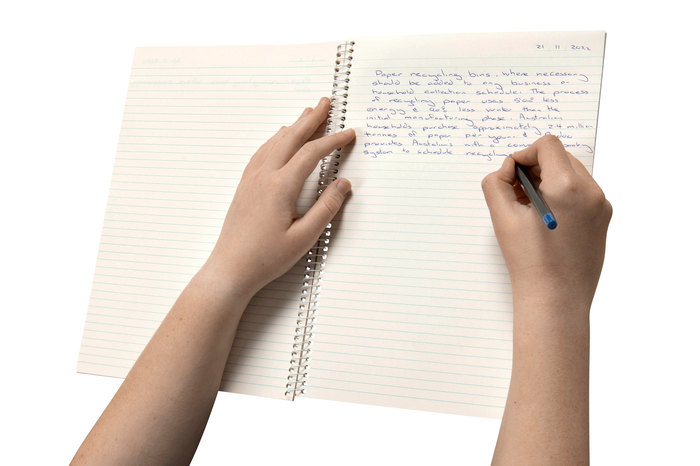 21 11 2012
Paper recycling bins, where necessary
should be added to any business or
household collection schedule. The process
of recycling paper uses 50% less
energy & 90% less water than the
initial manufacturing phase. Australian
households purchase approximately 2.4 million
tonnes of paper per year. &
provides Australians with a
system to schedule recycling